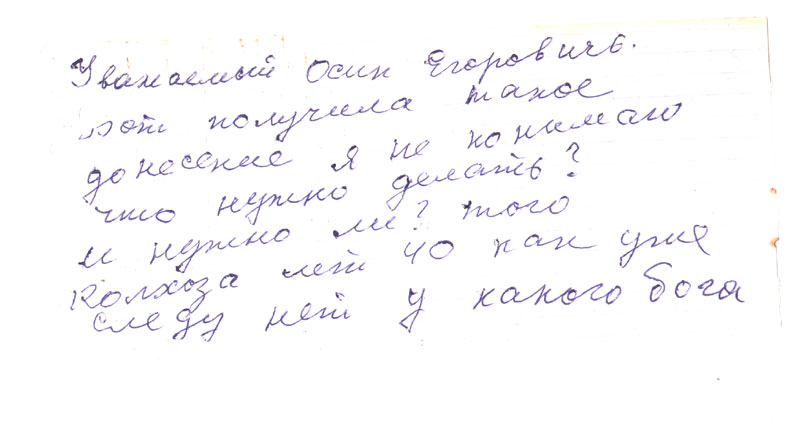 Уважаемый Осип Егоровичь.
вот получила такое
донесение я не понимаю
что нужно делать?
и нужно ли? того
колхоза лет 40 как уже
следу нет у какого бога